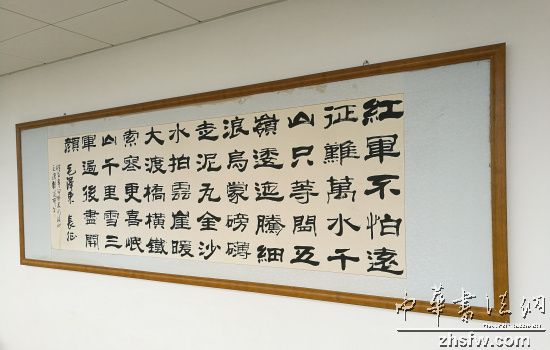 紅軍不怕遠
征難萬水千
山只等間五
嶺逶迤騰細
浪烏蒙磅礴
走泥丸金沙
水拍雲崖暖
大渡橋橫鐵
索寒更喜岷
山千里雪三
軍過後盡開
顏 毛澤東 長征
中華書法網
zhsfw.com